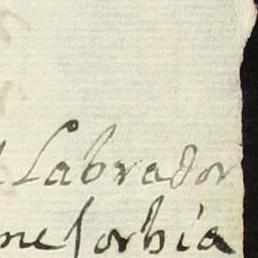 Labrador
me sorbia